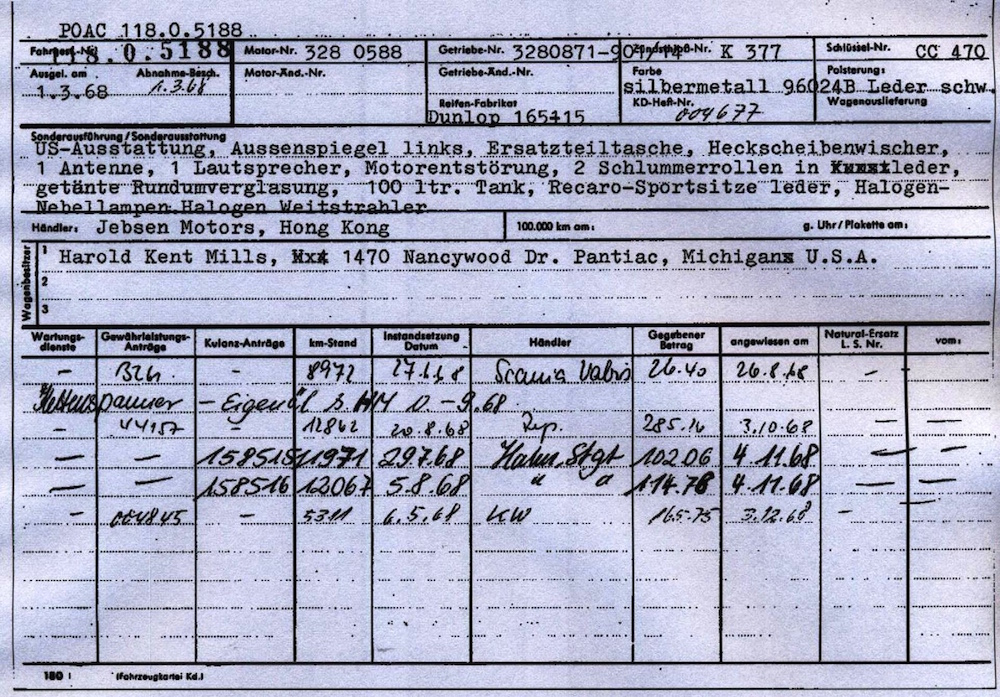 POAC 118.0.5188
Fahrgest.-Nr. 118.0.5188 Motor-Nr. 328 0588 Getriebe-Nr. 3280871-901/14 Zündschloß-Nr. K 377 Schlüssel-Nr. CC 470
Ausgel. am Abnahme-Besch. Motor-Änd.-Nr. Getriebe-Änd.-Nr. Farbe Polsterung:
1.3.68 1.3.68 silbermetall 96024B Leder schw.
Reifen-Fabrikat KD-Heft-Nr. Wagenauslieferung
Dunlop 165415 004677
Sonderausführung/Sonderausstattung
US-Ausstattung, Aussenspiegel links, Ersatzteiltasche, Heckscheibenwischer,
1 Antenne, 1 Lautsprecher, Motorentstörung, 2 Schlummerrollen in leder,
getänte Rundumverglasung, 100 ltr. Tank, Recaro-Sportsitze leder, Halogen-
Nebellampen Halogen Weitstrahler
Händler: Jebsen Motors, Hong Kong 100.000 km am: g. Uhr/Plakette am:
Wagenbesitzer
1 Harold Kent Mills, 1470 Nancywood Dr. Pantiac, Michigan U.S.A.
2
3
Wartungs-dienste Gewährleistungs-Anträge Kulanz-Anträge km-Stand Instandsetzung Datum Händler Gegebener Betrag angewiesen am Natural-Ersatz L. S. Nr. vom:
– – 8972 Scania Vabis 26.40 26.8.68 –
Kettenspanner – 9.68
– 44157 12862 20.8.68 Rep. 285.16 3.10.68 – –
– – 158515 11971 29.7.68 Hahn, Stgt 102.06 4.11.68 – –
– – 158516 12067 5.8.68 " " 114.78 4.11.68 – –
– 004845 – 5311 6.5.68 KW 165-75 3.12.68 –
180 I (Fahrzeugkartei Kd.)